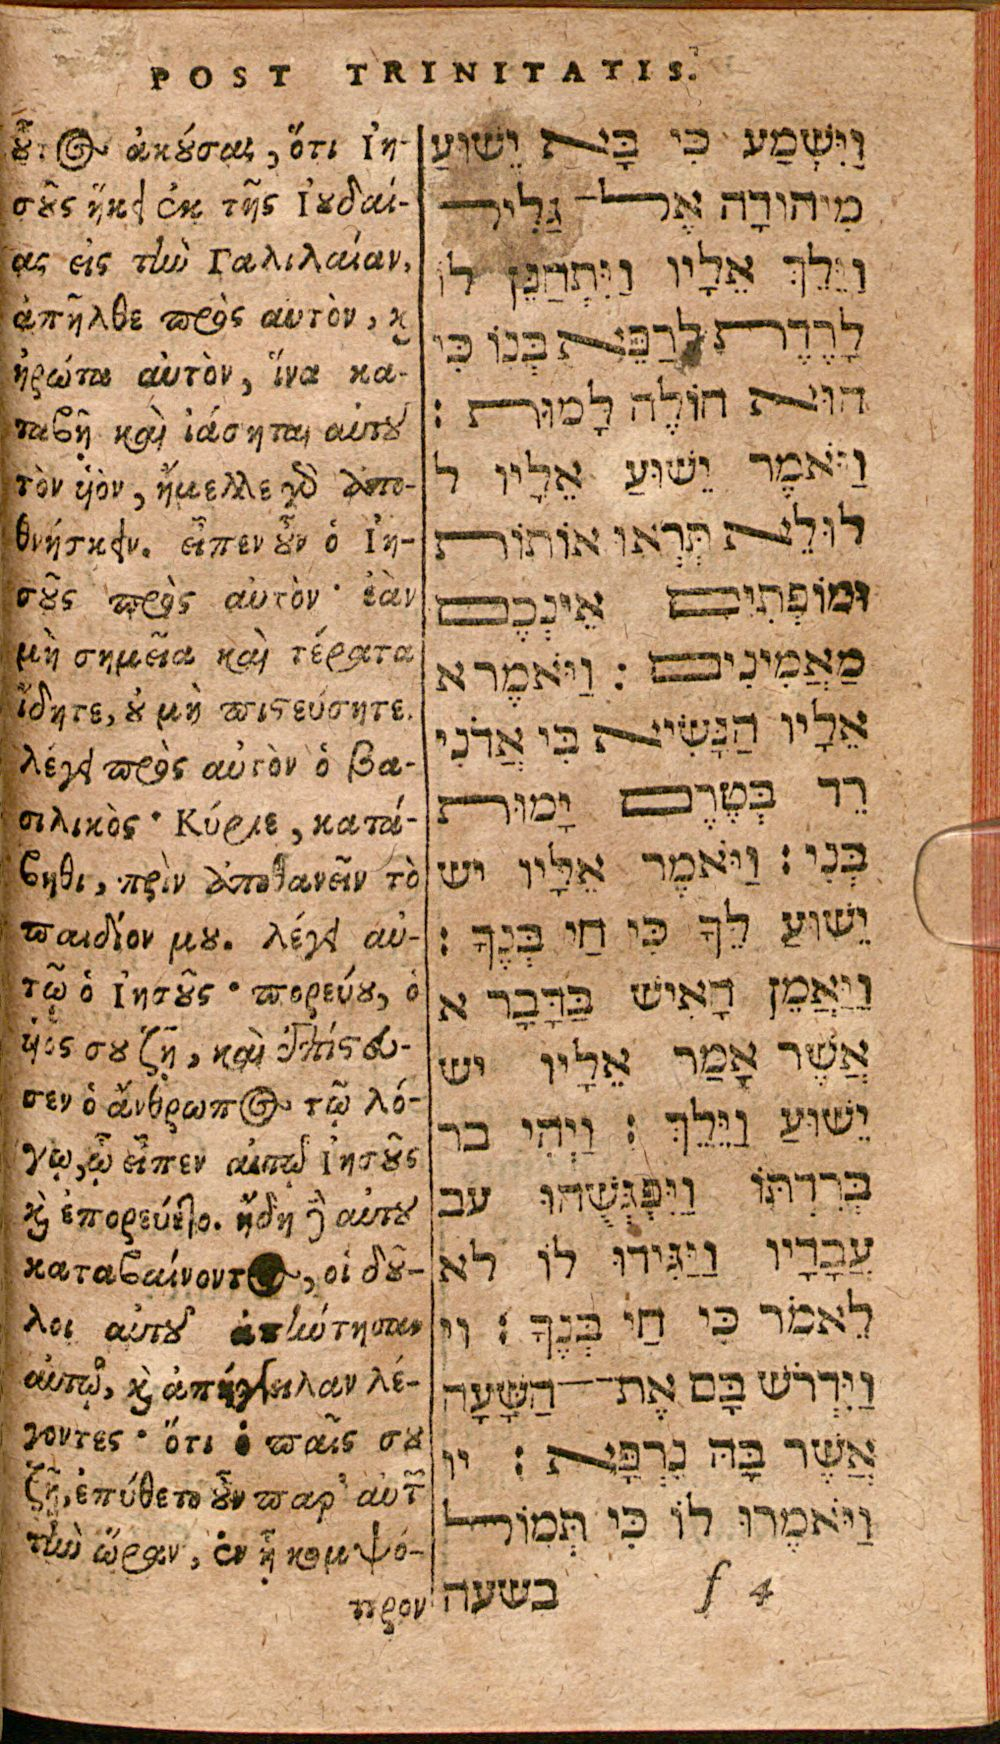 POST TRINITATIS.
οὗτος ἀκούσας, ὅτι Ἰη-
σοῦς ἥκει ἐκ τῆς Ἰουδαί-
ας εἰς τὴν Γαλιλαίαν,
ἀπῆλθε πρὸς αυτὸν, κ
ἠρώτα αὐτὸν, ἵνα κα-
ταβῇ καὶ ἰάσηται αὐτοῦ
τὸν ὑὸν, ἤμελλε γὰρ ἀπο-
θνήσκειν. εἶπεν οὖν ὁ Ἰη-
σοῦς πρὸς αὐτὸν· ἐὰν
μὴ σημεῖα καὶ τέρατα
ἴδητε, οὐ μὴ πιστεύσητε.
λέγει πρὸς αὐτὸν ὁ βα-
σιλικὸς· Κύριε, κατά-
βηθι, πρὶν ἀποθανεῖν τὸ
παιδίον μου. λέγει αὐ-
τῷ ὁ Ἰησοῦς· πορεύου, ὁ
ὑός σου ζῇ, καὶ ἐπίστευ-
σεν ὁ ἄνθρωπος τῷ λό-
γῳ, ᾧ εἶπεν αὐτῷ Ἰησοῦς
κὶ ἐπορεύετο. ἤδη δὲ αὐτοῦ
καταβαίνοντος, οἱ δοῦ-
λοι αὐτοῦ ἀπήντησαν
αὐτῷ, κὶ ἀπήγγειλαν λέ-
γοντες· ὅτι ὁ παῖς σου
ζῇ, ἐπύθετο οὖν παρ' αὐτῶν
τὴν ὥραν, ἐν ᾗ κομψό-
τερον
וַיִּשְׁמַע כִּי בָּא יֵשׁוּעַ
מִיהוּדָה אֶל־ גַּלִיל
וַיֵּלֶךְ אֵלָיו וַיִּתְחַנֵּן לוֹ
לָרֶדֶת לְרַפֵּא בְּנוֹ כִּי
הוּא חוֹלֶה לָמוּת :
וַיֹּאמֶר יֵשׁוּעַ אֵלָיו ל
לוּלֵא תִּרְאוּ אוֹתוֹת
וּמוֹפְתִים אֵינְכֶם
מַאֲמִינִים : וַיֹּאמֶר א
אֵלָיו הַנָּשִׂיא כִּי אֲדֹנִי
רֵד בְּטֶרֶם יָמוּת
בְּנִי : וַיֹּאמֶר אֵלָיו יש
יֵשׁוּעַ לֵךָ כִּי חַי בְּנֶךָ :
וַיַּאֲמֵן הָאִישׁ בַּדָּבָר א
אֲשֶׁר אָמַר אֵלָיו יש
יֵשׁוּעַ וַיֵּלֵךְ : וַיְהִי בר
בְּרִדְתּוֹ וַיִּפְגְּשֻׁהוּ עב
עֲבָדָיו וַיַּגִּידוּ לוֹ לא
לֵאמֹר כִּי חַי בְּנֶךָ : וי
וַיִּדְרֹשׁ בָּם אֶת־ הַשָּׁעָה
אֲשֶׁר בָּהּ נִרְפָּא : יו
וַיֹּאמֶרוּ לוֹ כִּי תְּמוֹל
בשעה
f 4